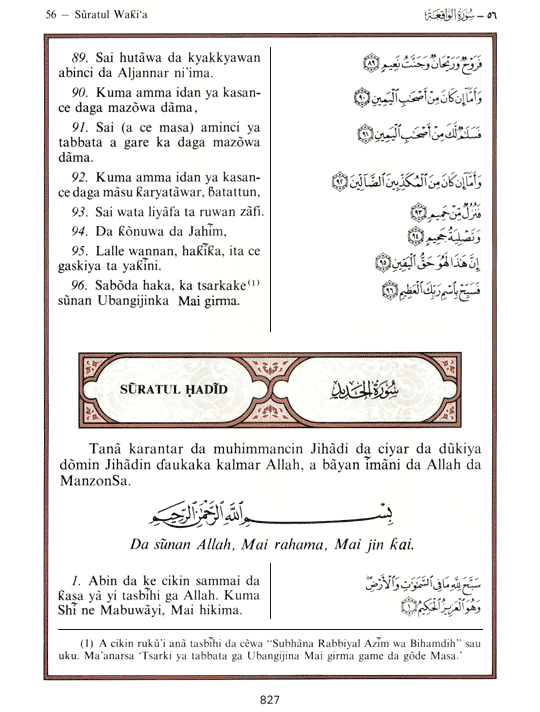 56 — Sũratul Waƙi‘a
٥٦ - سُورَةُ الوَاقِعَة
89. Sai hutãwa da kyakkyawan
abinci da Aljannar ni'ima.
فَرَوْحٌ وَرَيْحَانٌ وَجَنَّتُ نَعِيمٍ ٨٩
90. Kuma amma idan ya kasan-
ce daga mazõwa dãma,
وَأَمَّآ إِن كَانَ مِنْ أَصْحَٰبِ ٱلْيَمِينِ ٩٠
91. Sai (a ce masa) aminci ya
tabbata a gare ka daga mazõwa
dãma.
فَسَلَٰمٌ لَّكَ مِنْ أَصْحَٰبِ ٱلْيَمِينِ ٩١
92. Kuma amma idan ya kasan-
ce daga mãsu ƙaryatãwar, ɓatattun,
وَأَمَّآ إِن كَانَ مِنَ ٱلْمُكَذِّبِينَ ٱلضَّآلِّينَ ٩٢
93. Sai wata liyãfa ta ruwan zãfi.
فَنُزُلٌ مِّنْ حَمِيمٍ ٩٣
94. Da ƙõnuwa da Jahĩm,
وَتَصْلِيَةُ جَحِيمٍ ٩٤
95. Lalle wannan, haƙĩƙa, ita ce
gaskiya ta yaƙĩni.
إِنَّ هَٰذَا لَهُوَ حَقُّ ٱلْيَقِينِ ٩٥
96. Sabõda haka, ka tsarkake(1)
sũnan Ubangijinka Mai girma.
فَسَبِّحْ بِٱسْمِ رَبِّكَ ٱلْعَظِيمِ ٩٦
SŨRATUL ḤADĨD
سُورَةُ الحَدِيدِ
Tanã karantar da muhimmancin Jihãdi da ciyar da dũkiya
dõmin Jihãdin ɗaukaka kalmar Allah, a bãyan ĩmãni da Allah da
ManzonSa.
بِسْمِ ٱللَّهِ ٱلرَّحْمَٰنِ ٱلرَّحِيمِ
Da sũnan Allah, Mai rahama, Mai jin ƙai.
1. Abin da ke cikin sammai da
ƙasa yã yi tasbĩhi ga Allah. Kuma
Shĩ ne Mabuwãyi, Mai hikima.
سَبَّحَ لِلَّهِ مَا فِى ٱلسَّمَٰوَٰتِ وَٱلْأَرْضِ
وَهُوَ ٱلْعَزِيزُ ٱلْحَكِيمُ ١
(1) A cikin rukũ'i anã tasbĩhi da cẽwa “Subhãna Rabbiyal Azĩm wa Bihamdih” sau
uku. Ma'anarsa ‘Tsarki ya tabbata ga Ubangijina Mai girma game da gõde Masa.’
827